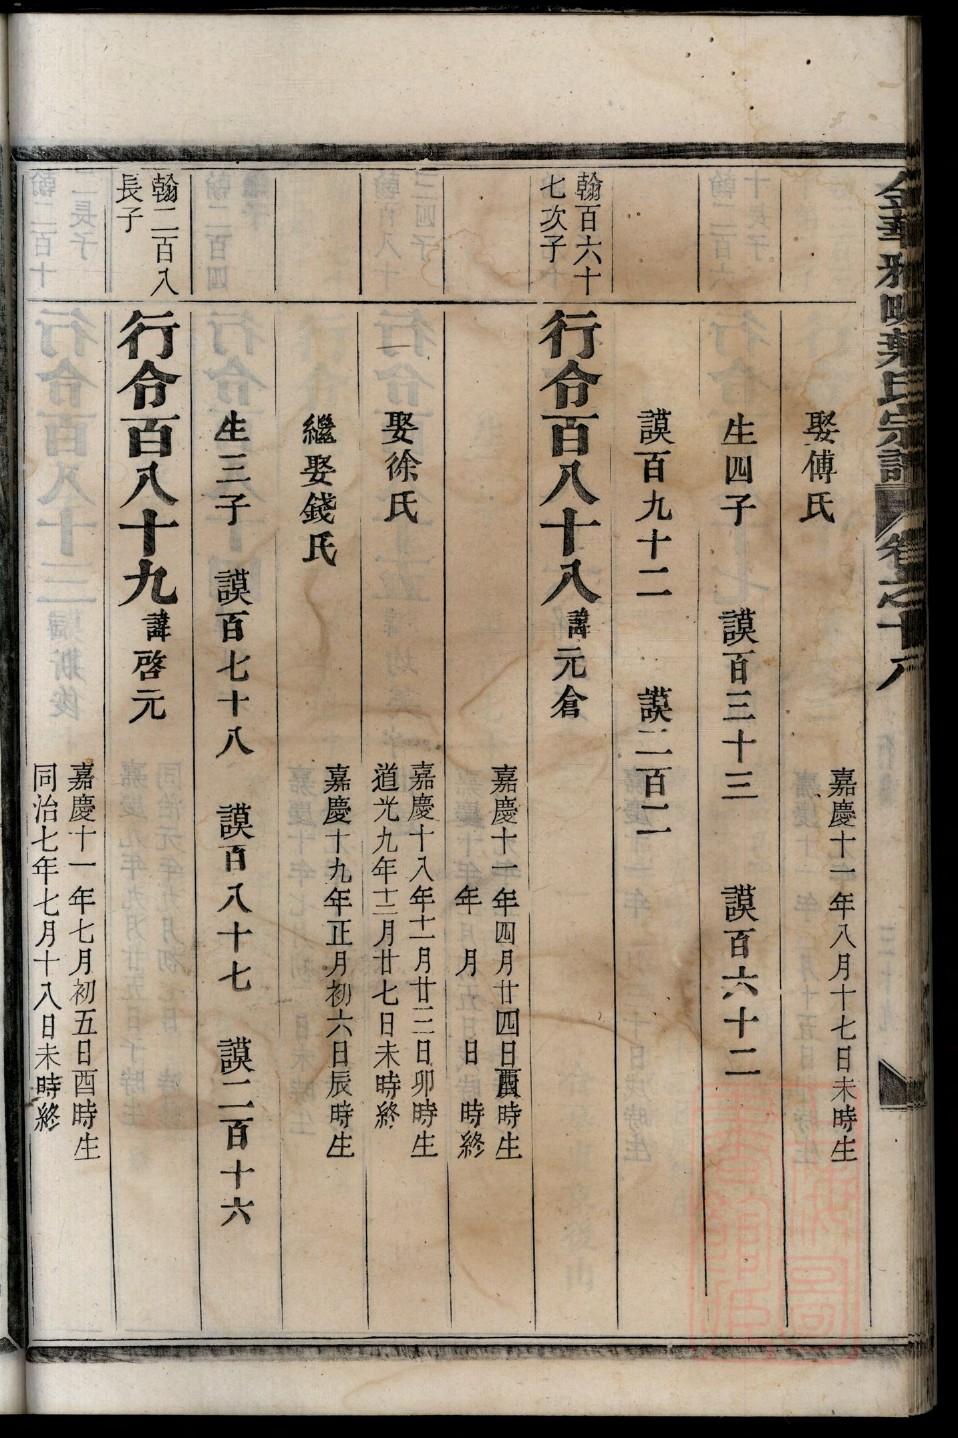 金華雅畈葉氏宗譜 卷之十八
娶傅氏
嘉慶十一年八月十七日未時生
生四子 謨百三十三 謨百六十二
謨百九十二 謨二百二
翰百六十
七次子
行令百八十八 諱元倉
嘉慶十一年四月廿四日酉時生
年 月 日 時終
娶徐氏
嘉慶十八年十一月廿二日卯時生
道光九年十二月廿七日未時終
繼娶錢氏
嘉慶十九年正月初六日辰時生
生三子 謨百七十八 謨百八十七 謨二百十六
翰二百八
長子
行令百八十九 諱啓元
嘉慶十一年七月初五日酉時生
同治七年七月十八日未時終